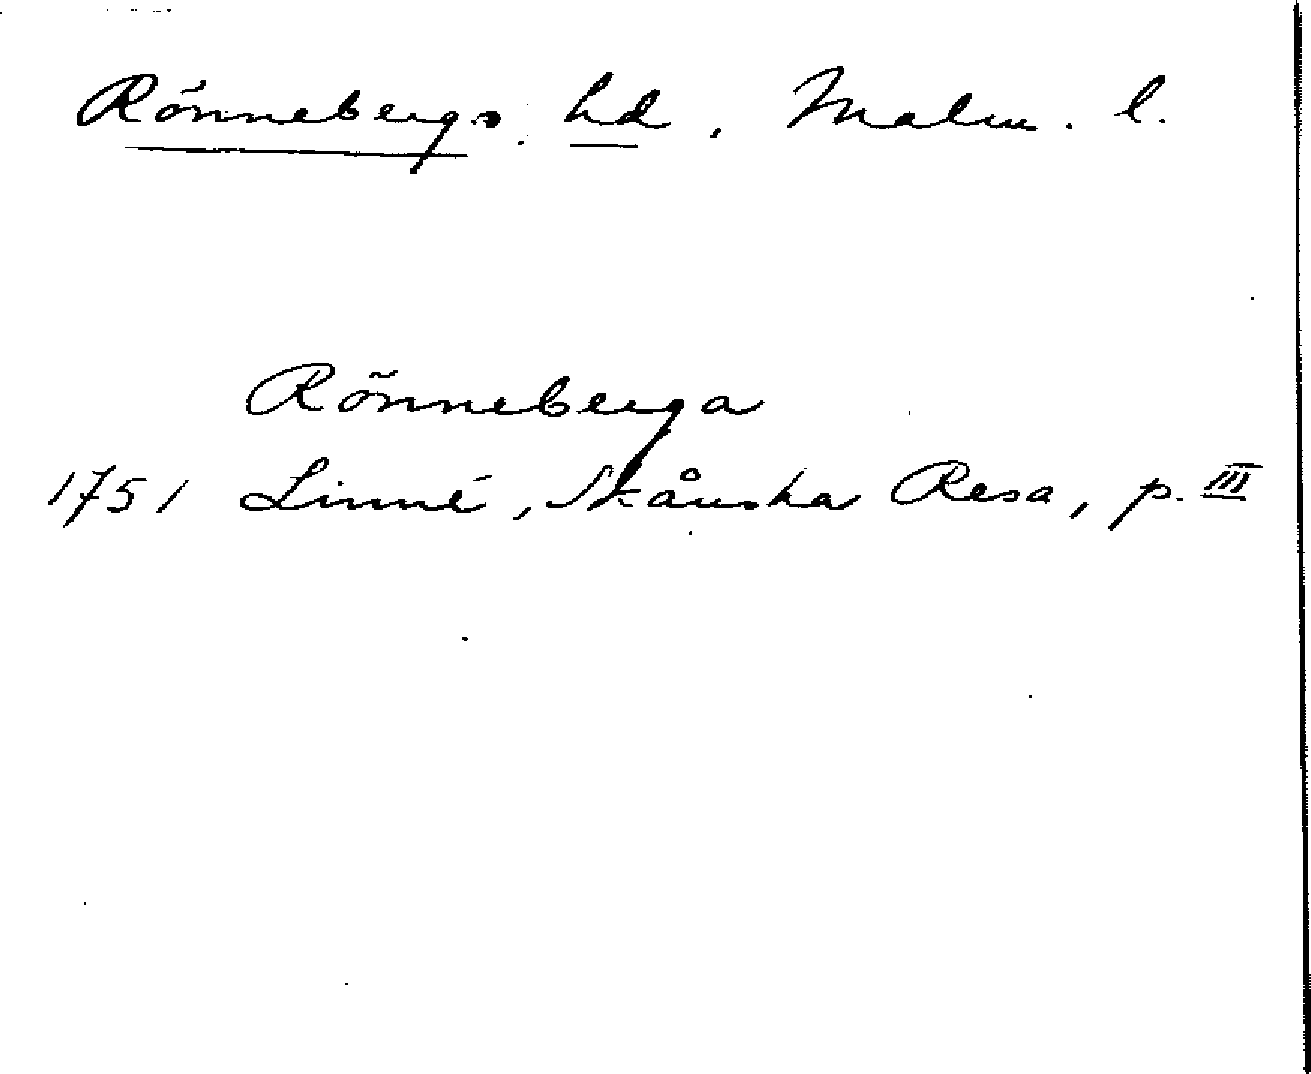 Rönnebergs hd, Malm. l.
Rönneberga
1751 Linné, Skånska Resa, p. III